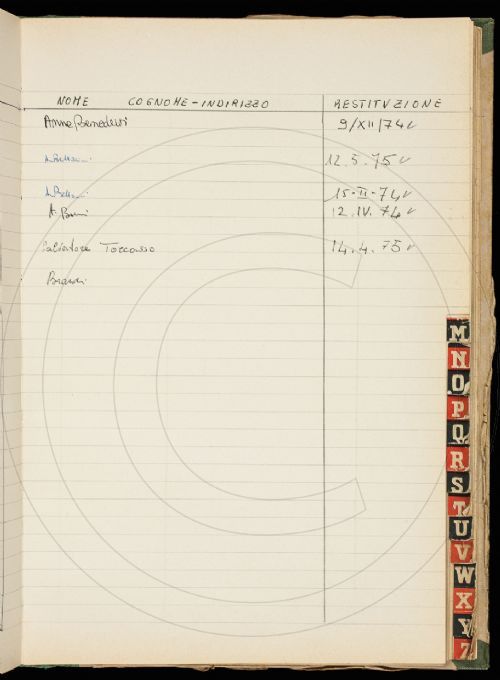 NOME COGNOME - INDIRIZZO RESTITUZIONE
Anna Benedetti 9/XII/74 v
12.5.75 v
15-II-74 v
A. 12.IV.74 v
Salvatore 14.4.75 v
M
N
O
P
Q
R
S
T
U
V
W
X
Y
Z